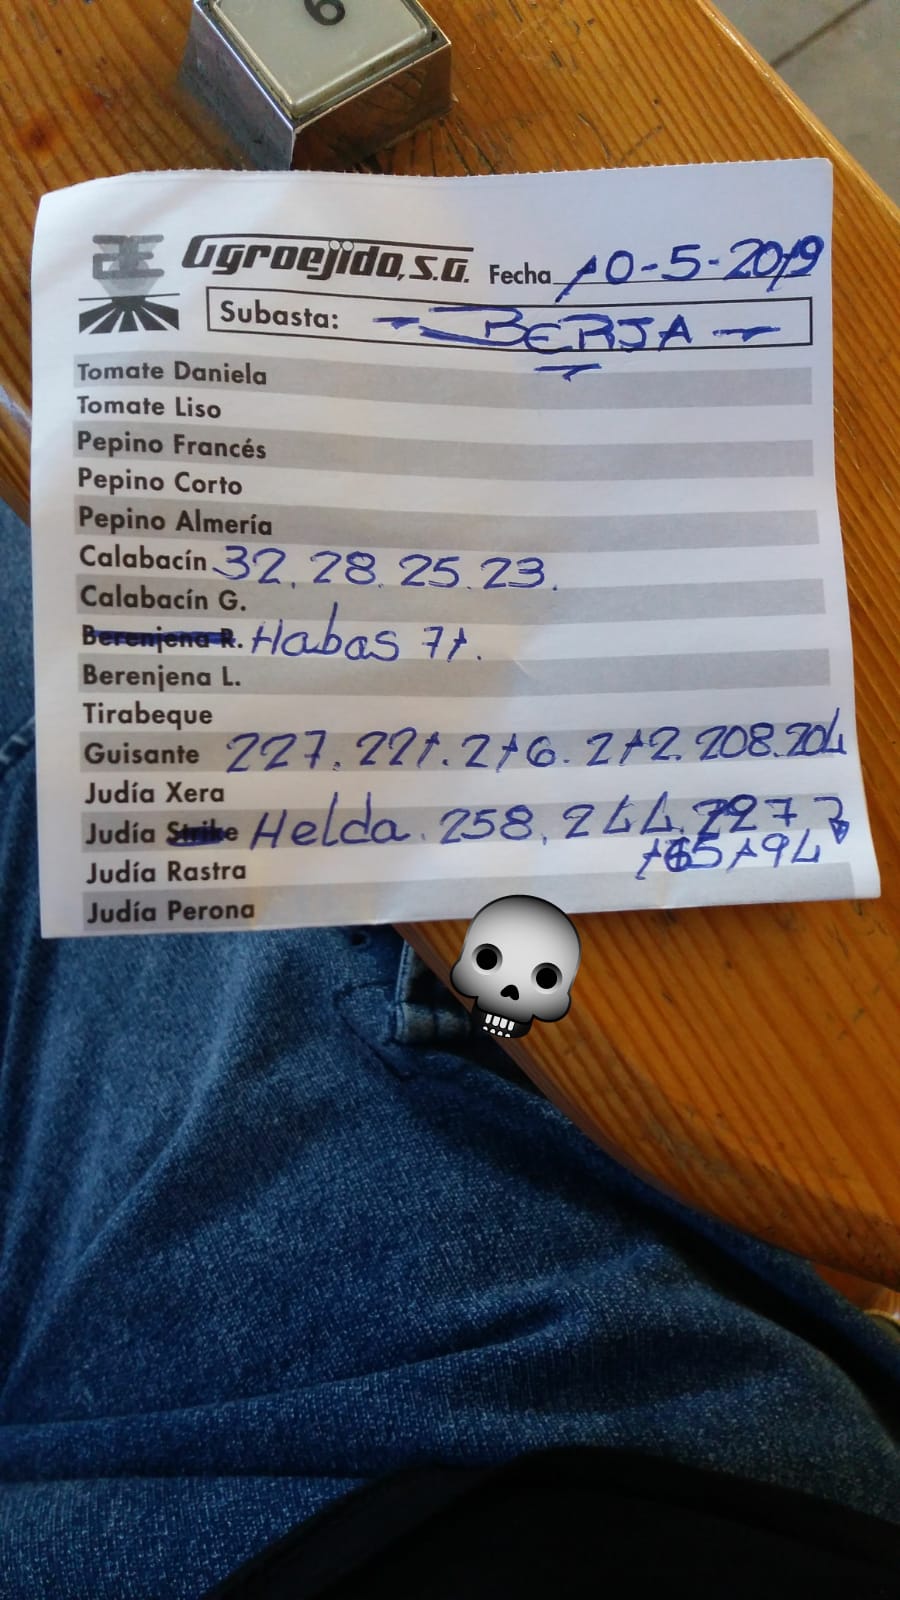 6
AE Agroejido, S.A. Fecha 10-5-2019
Subasta: BERJA
Tomate Daniela
Tomate Liso
Pepino Francés
Pepino Corto
Pepino Almería
Calabacín 32. 28. 25. 23.
Calabacín G.
Berenjena R. Habas 71.
Berenjena L.
Tirabeque
Guisante 227. 221. 216. 212. 208. 204
Judía Xera
Judía Strike Helda. 258. 244.
194
Judía Rastra
Judía Perona